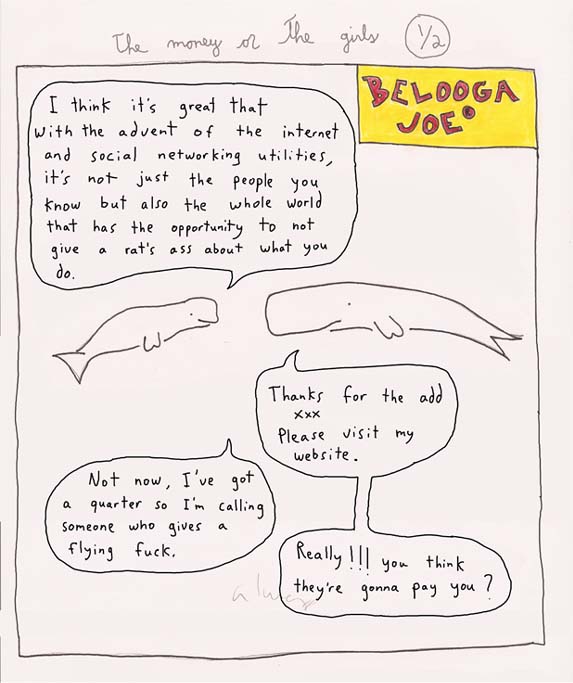 The money or The girls 1/2
BELOOGA
JOE
I think it's great that
with the advent of the internet
and social networking utilities,
it's not just the people you
know but also the whole world
that has the opportunity to not
give a rat's ass about what you
do.
Thanks for the add
xxx
Please visit my
website.
Not now, I've got
a quarter so I'm calling
someone who gives a
flying fuck.
Really!!! you think
they're gonna pay you?